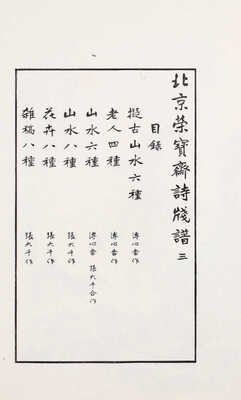 北京榮寶齋詩牋譜 三
目錄
擬古山水六種 溥心畬作
老人四種 溥心畬作
山水六種 溥心畬 張大千合作
山水八種 張大千作
花卉八種 張大千作
雜稿八種 張大千作